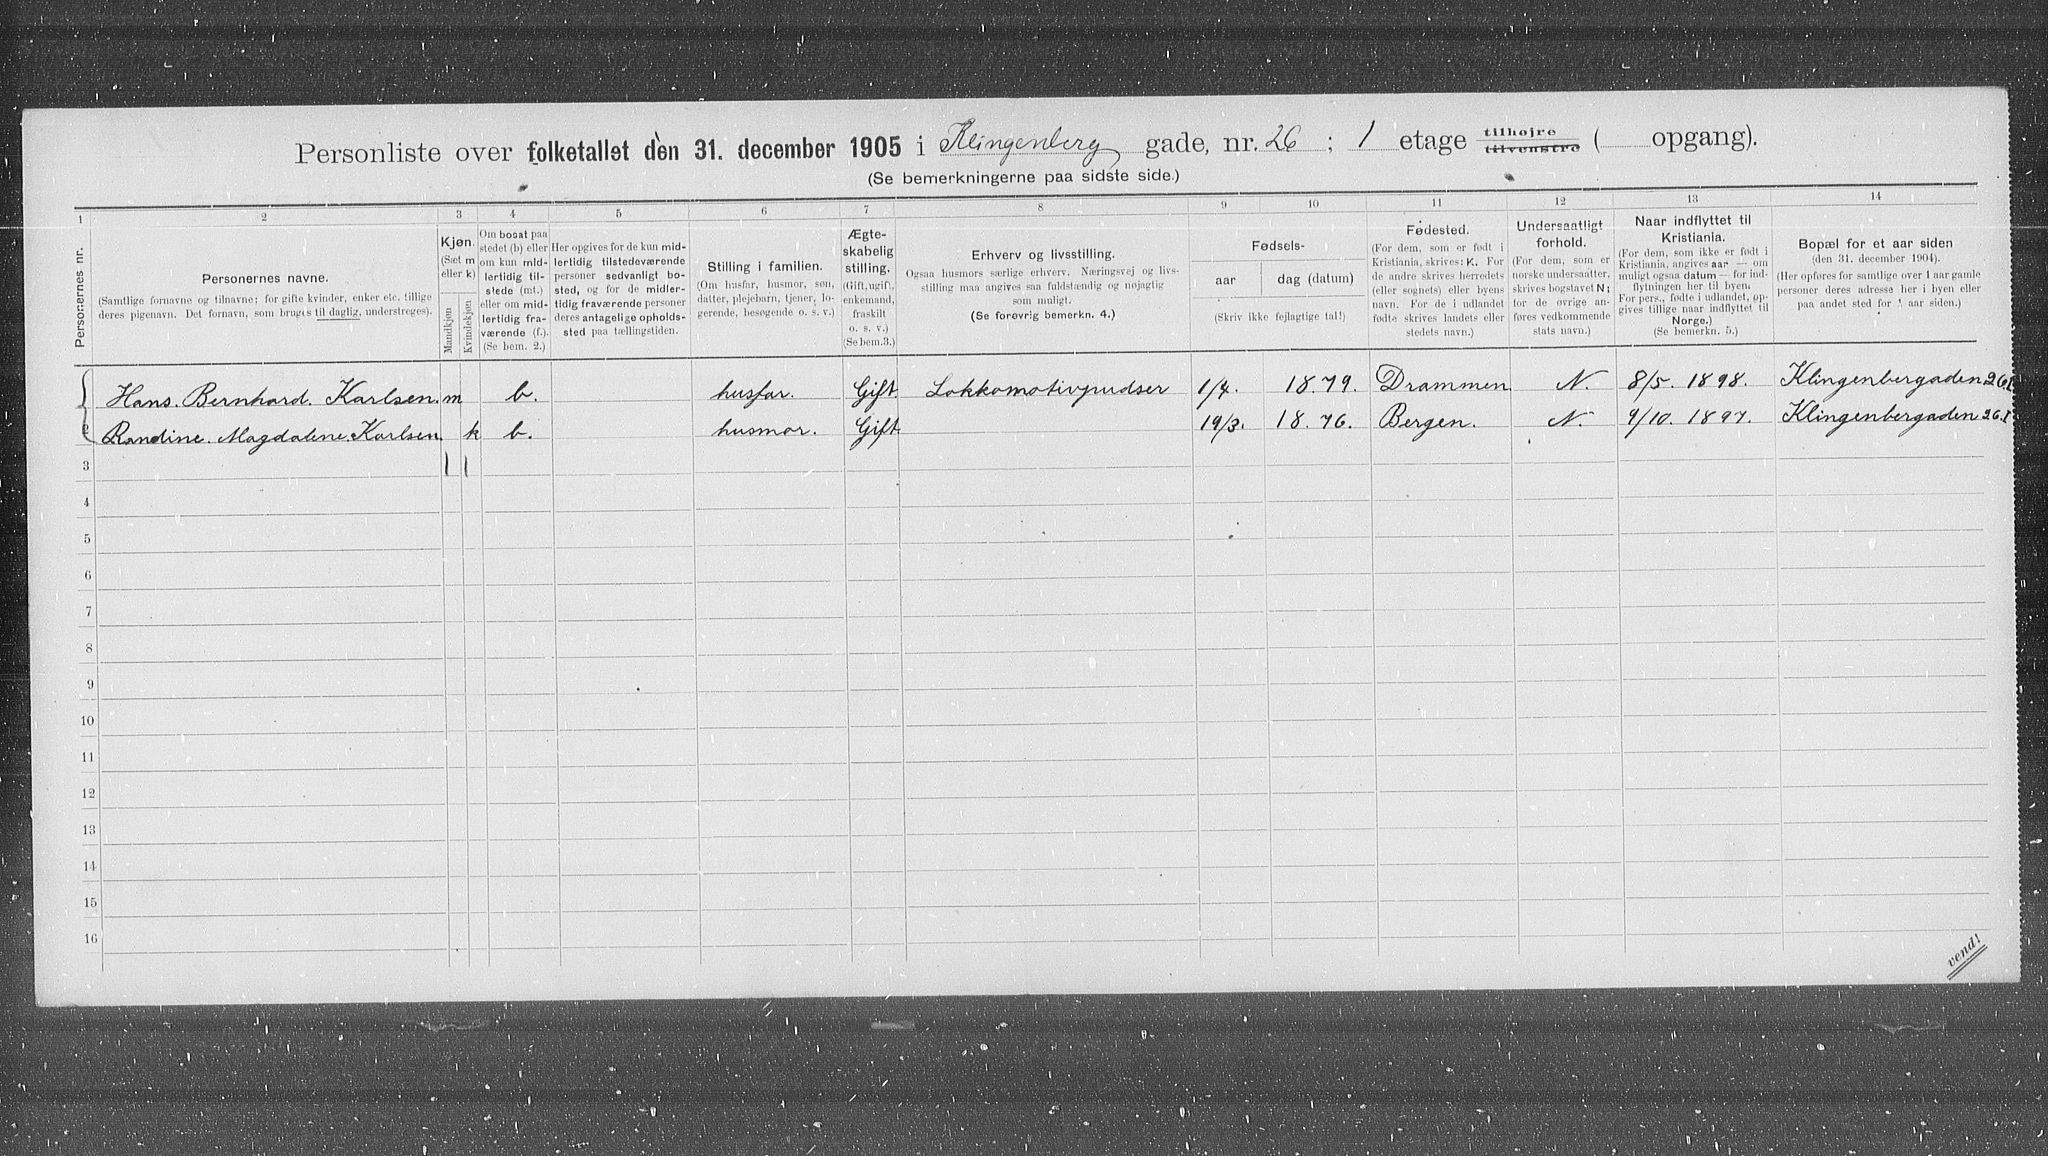 Personliste over folketallet den 31. december 1905 i Klingenberg gade, nr. 26 ; 1 etage tilhøjre tilvenstre ( opgang).
(Se bemerkningerne paa sidste side.)
1 2 3 4 5 6 7 8 9 10 11 12 13 14
Personernes nr.
Personernes navne.
(Samtlige fornavne og tilnavne; for gifte kvinder, enker etc. tillige
deres pigenavn. Det fornavn, som bruges til daglig, understreges).
Kjøn.
(Sæt m
eller k)
Mandkjøn
Kvindekjøn
Om bosat paa
stedet (b) eller
om kun mid-
lertidig til-
stede (mt.)
eller om mid-
lertidig fra-
værende (f.).
(Se bem. 2.)
Her opgives for de kun mid-
lertidig tilstedeværende
personer sedvanligt bo-
sted, og for de midler-
tidig fraværende personer
deres antagelige opholds-
sted paa tællingstiden.
Stilling i familien.
(Om husfar, husmor, søn,
datter, plejebarn, tjener, lo-
gerende, besøgende o. s. v.)
Ægte-
skabelig
stilling.
(Gift, ugift,
enkemand,
fraskilt
o. s. v.)
(Se bem.3.)
Erhverv og livsstilling.
Ogsaa husmors særlige erhverv. Næringsvej og livs-
stilling maa angives saa fuldstændig og nøjagtig
som muligt.
(Se forøvrig bemerkn. 4.)
Fødsels-
aar
dag (datum)
(Skriv ikke fejlagtige tal!)
Fødested.
(For dem, som er født i
Kristiania, skrives: K. For
de andre skrives herredets
(eller sognets) eller byens
navn. For de i udlandet
fødte skrives landets eller
stedets navn.)
Undersaatligt
forhold.
(For dem, som er
norske undersaatter,
skrives bogstavet N;
for de øvrige an-
føres vedkommende
stats navn.)
Naar indflyttet til
Kristiania.
(For dem, som ikke er født i
Kristiania, angives aar — om
muligt ogsaa datum — for ind-
flytningen her til byen.
For pers., fødte i udlandet, op-
gives tillige naar indflyttet til
Norge.)
(Se bemerkn. 5.)
Bopæl for et aar siden
(den 31. december 1904).
(Her opføres for samtlige over 1 aar gamle
personer deres adresse her i byen eller
paa andet sted for 1 aar siden.)
Hans. Bernhard. Karlsen. m b. husfar. Gift. Lokkomotivpudser 1/4. 1879. Drammen. N. 8/5. 1898. Klingenbergaden 26.I
2 Randine. Magdalene. Karlsen. k b. husmor. Gift. 19/3. 1876. Bergen. N. 9/10. 1897. Klingenbergaden 26.I
3 1 1
4
5
6
7
8
9
10
11
12
13
14
15
16
vend!